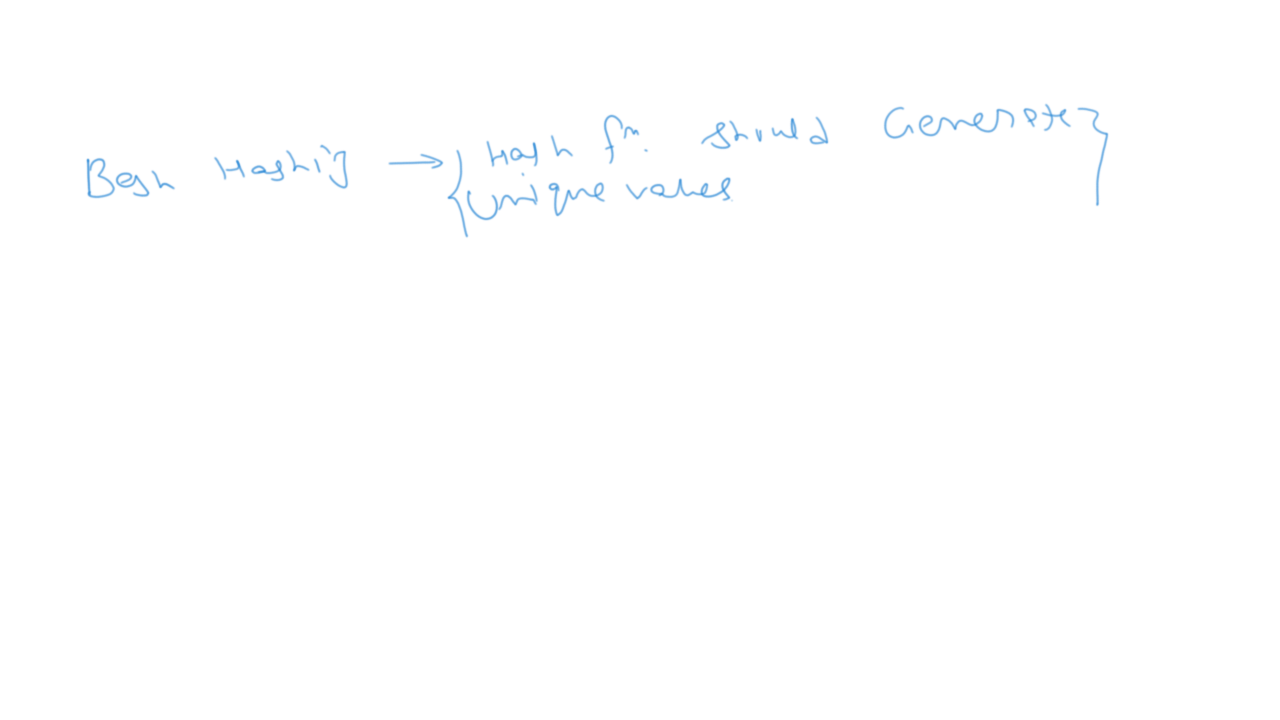 Hashing → { Hash fn. should Generate }
unique values